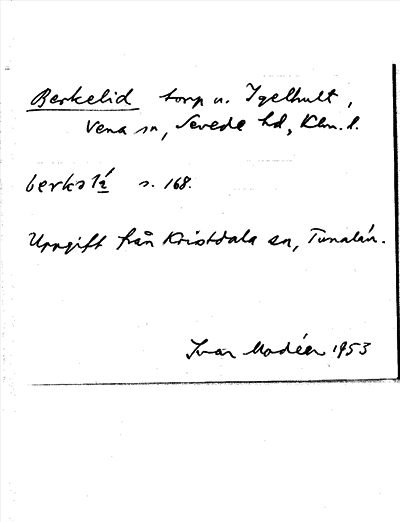 Berkelid torp u. Igelhult,
Vena sn, Sevede hd, Klm. l.
bɛrkəlí s. 168.
Uppgift från Kristdala sn, Tunalän.
Ivar Modéer 1953